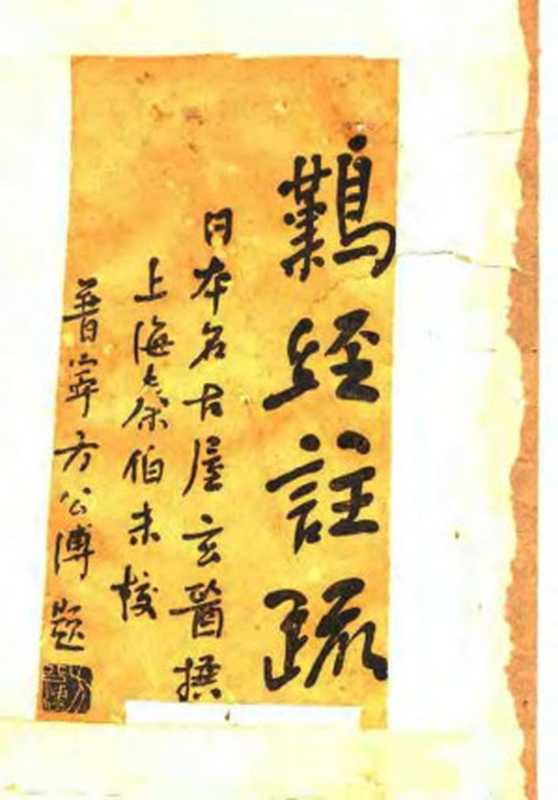 難經註疏
日本名古屋玄醫撰
上海秦伯未校
普寧方公溥題